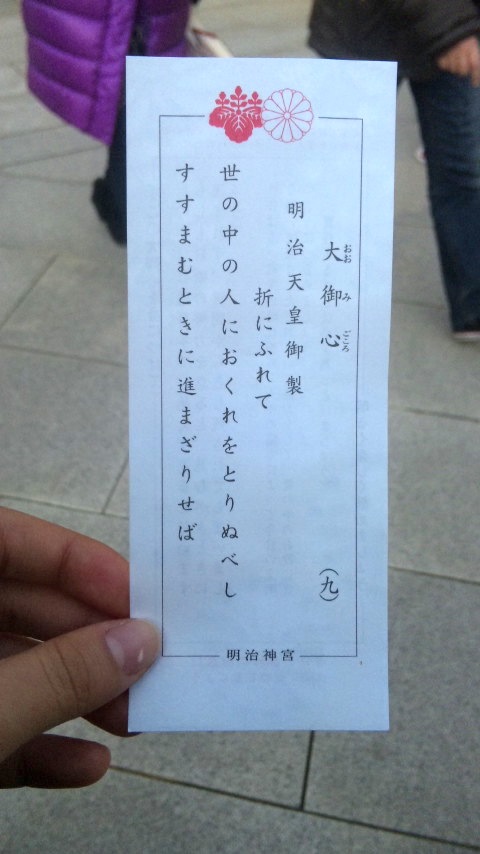 大御心 (九)
おお み ごころ
明治天皇御製
折にふれて
世の中の人におくれをとりぬべし
すすまむときに進まざりせば
明治神宮